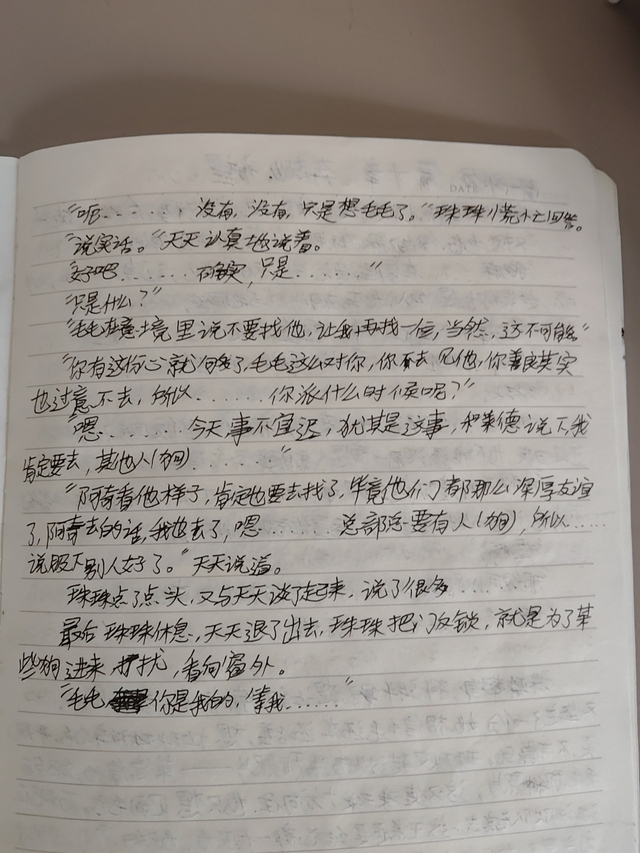 "呃........, 没有, 没有, 只是想毛毛了。"珠珠小慌小忙回答。
"说实话。"天天认真地说着。
"好吧........ 不确实, 只是........"
"只是什么?"
"毛毛在意境里说不要找他, 让我再找一位, 当然, 这不可能"
"你有这份心就够了, 毛毛这么对你, 你不去见他, 你善良其实
也过意不去, 所以....... 你派什么时候呢?"
"嗯........ 今天, 事不宜迟, 犹其是这事, 和莱德说下, 我
肯定要去, 其他人(狗)........"
"阿奇看他样子, 肯定也要去找了, 毕竟他们都那么深厚友谊
了, 阿奇去的话, 我也去了, 嗯........ 总部总要有人(狗), 所以.....
说服下别人好了。"天天说道。
珠珠点了点头, 又与天天谈了起来, 说了很多.......
最后珠珠休息, 天天退了出去, 珠珠把门反锁, 就是为了某
些狗进来打扰, 看向窗外。
"毛毛, 你是我的, 等我......"
DATE